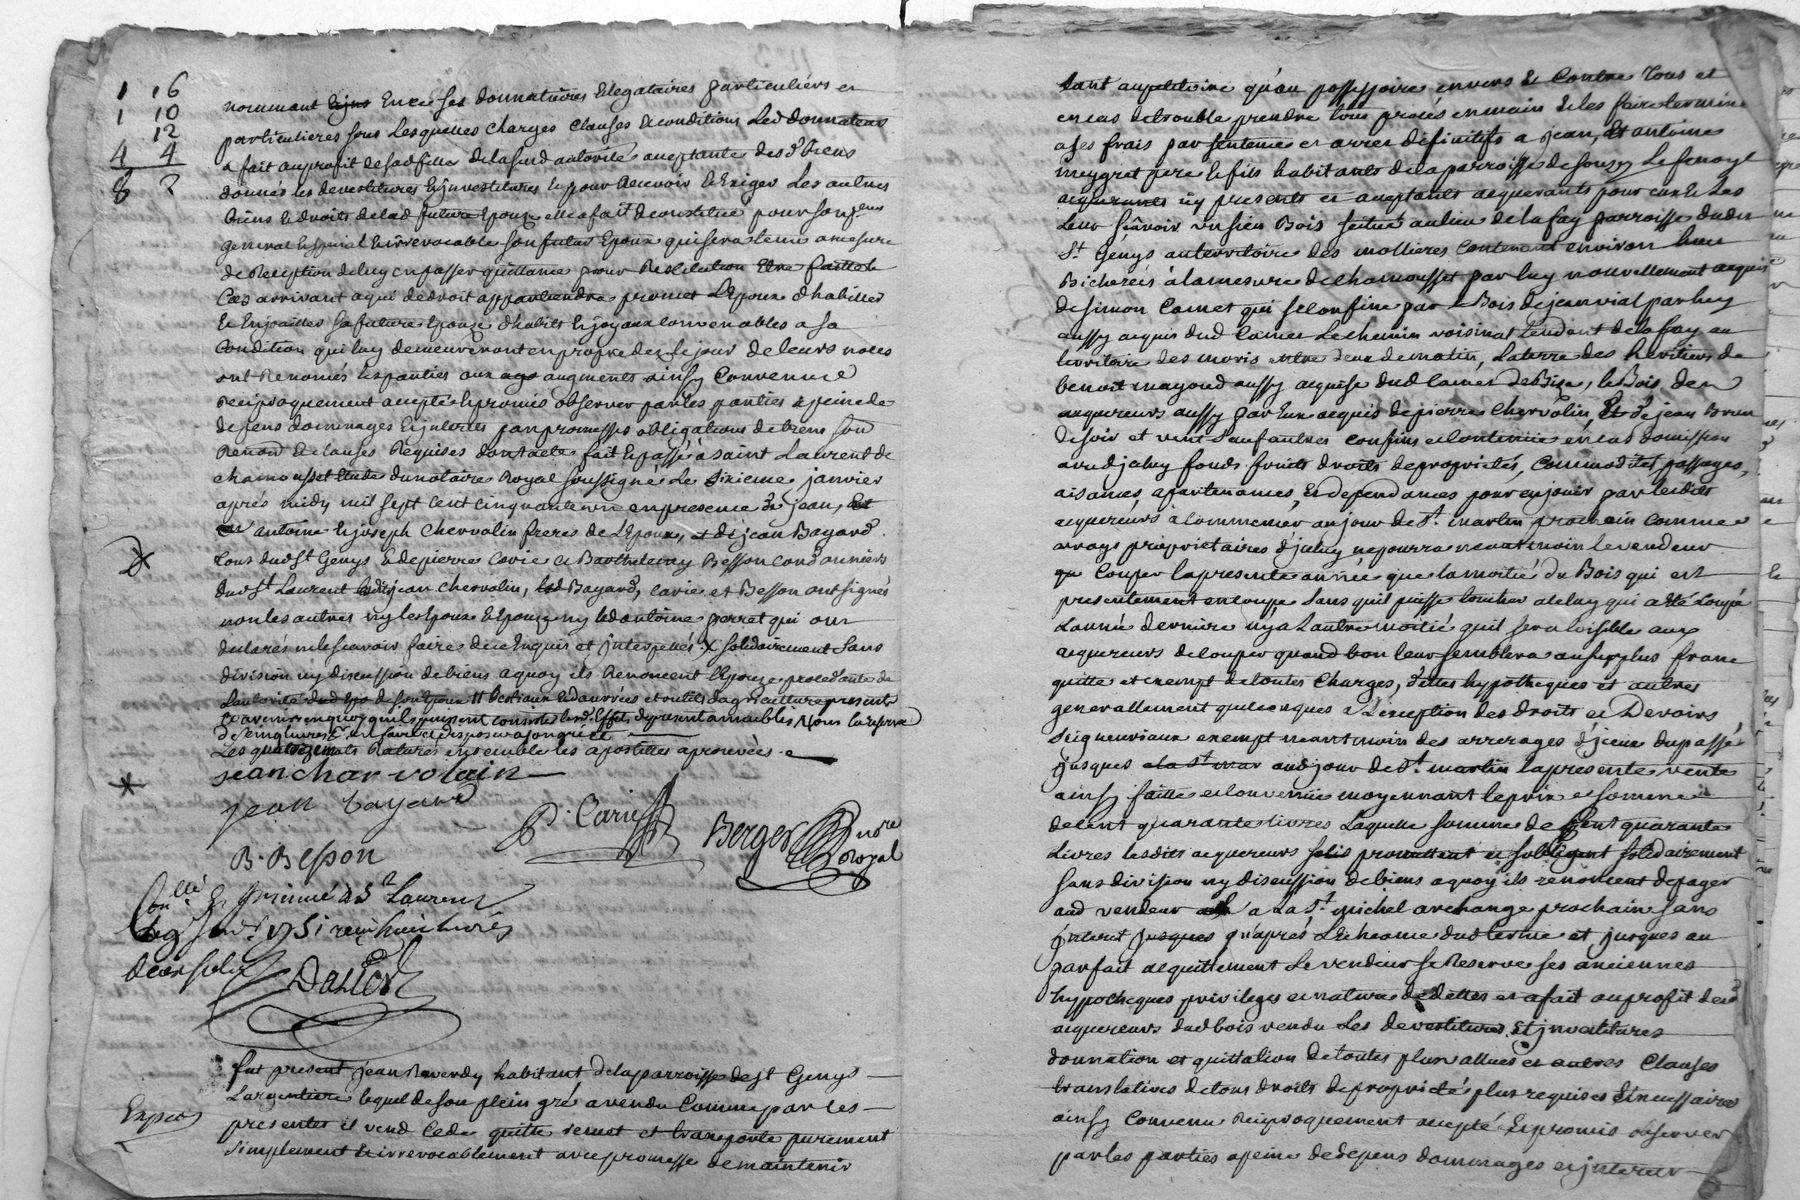 1 16
1 10
12
4 4
8 2
nommant Enee ses donnatrices Et legataires particuliers et
particulieres sous Lesquelles charges clauses Et conditions Led donnateur
a fait au profit de sad fille de lasusd autorité aceptante des d. Biens
donnés les devestitures Et jnvestitures Et pour Recevoir Et Exiger Les autres
biens Et droits de lad future Epouze elle a fait Et constitué pour son
general Espcial Et irrevocable son futur Epoux qui sera tenu a mesure
de Reception de luy en passer quittance pour Restitution Etre faitte le
Cas arrivant a qui de droit appartiendra promet L'Epoux d'habiller
Et Enjoailler sa future Epouze d'habits Et joyaux convenables a sa
Condition qui luy demeureront en propre dez le jour de leurs noces
ont Renoncés Les parties aux augments ainsy Convenu
Reciproquement acepté Et promis observer par les parties a peine de
depens dommages Et jnterets par promesses obligations de biens sou
Renon Et clauses Requises dont acte fait Et passé a Saint Laurent de
chamousset Etude du notaire Royal soussigné Le Sixieme janvier
aprés midy mil sept cent cinquante un en presence de jean,
antoine Et joseph Chervolin freres de L'Epoux, et de jean Bayard
tous dud St Genys Et de pierre Carie et Barthelemy Besson cordonniers
dud St Laurent led jean chervolin, led Bayard, carie et Besson ont signés
non les autres ny les Epoux Et Epouze ny led antoine perret qui ont
declarés ne le scavoir faire de ce Enquis et jnterpellés X solidairement Sans
division ny discussion de biens a quoy ils Renoncent l'Epouze procedante de
L'autorité dud Epo de son Epoux # bestiaux Et danrées et outils d'agriculture presents
et avenir en quoy qu'ils puissent consister lesd. Effets du present a meubles
Les mots Raturés ensemble les apostilles aprouvées
jean charvolain
jean bayard
P. Carie
Berger nore Royal
B. Besson
Conllé Et jnsinué a St Laurent
le 17 janvr 1751 reçu huit livres
Daller
Exped
fut present jean Reverdy habitant de la parroisse de St Genys
L'argentiere lequel de son plein gré a vendu Comme par les
presentes il vend Cede quitte remet et transporte purement
Simplement Et irrevocablement avec promesse de maintenir
tant au petitoire qu'au possessoire envers Et Contre Tous et
en cas de trouble prendre tous procés en main Et les faire terminer
a ses frais par sentence et arret definitifs a jean, Et antoine
meygret pere Et fils habitants de la parroisse de Souzy Le
acquerants icy presents et aceptants acquerants pour eux Et Les
Leur scavoir un sien Bois scitué au lieu de la fay parroisse dud
St. Genys au territoire des mollieres Contenant environ huit
Bicherées à la mesure de Chamousset par luy nouvellement acquis
de simon Carnet qui se Confine par Le Bois de jean vial par luy
aussy acquis dud Carnet Le chemin voisinat tendant de la fay au
territoire des moris entre deux de matin, La terre des heritiers de
benoit mayoud aussy acquise dud Carnet de Bize, le Bois des
acquereurs aussy par Eux acquis de pierre Chervolin, Et de jean Brun
de soir et vent Sauf autres confins et Contenue en cas d'omission
avec d'jceluy fonds fruits droits de proprietés, Commodités passages,
aisances, apartenances, Et dependances pour en jouir par lesdits
acquereurs à Commencer au jour de St. martin prochain comme
vrays proprietaires d'jceluy ne pourra neantmoin le vendeur
Couper la presente année que la moitié du Bois qui est
presentement en coupe sans qu'il puisse toucher a celuy qui a eté Coupé
L'année derniere ny a L'autre moitié qu'il sera loisible aux
acquereurs de Couper quand bon leur semblera au surplus franc
quitte et exempt de toutes Charges, dettes hypotheques et autres
generallement quelconques à L'exception des droits et Devoirs
seigneuriaux exempt neantmoin des arrerages d'jceux du passé
jusques aud jour de St. martin la presente vente
ainsy faitte et Convenüe moyennant le prix et somme
de Cent quarante livres Laquelle somme de Cent quarante
Livres lesdits acquereurs promettent et s'obligent solidairement
sans division ny discussion de biens a quoy ils renoncent de payer
aud vendeur a La St. michel archange prochaine sans
jnteret jusques qu'aprés L'Echeance dud terme et jusques au
parfait acquittement Le vendeur se Reserve ses anciennes
hypotheques privileges et nature de dettes et a fait au profit desd
acquereurs dud bois vendu Les devestitures Et jnvestitures
donnation et quittation de toutes plus vallues et autres Clauses
translatives de tous droits de proprieté plus requises Et necessaires
ainsy Convenu Reciproquement acepté Et promis observer
par les parties a peine de depens dommages et jnterets